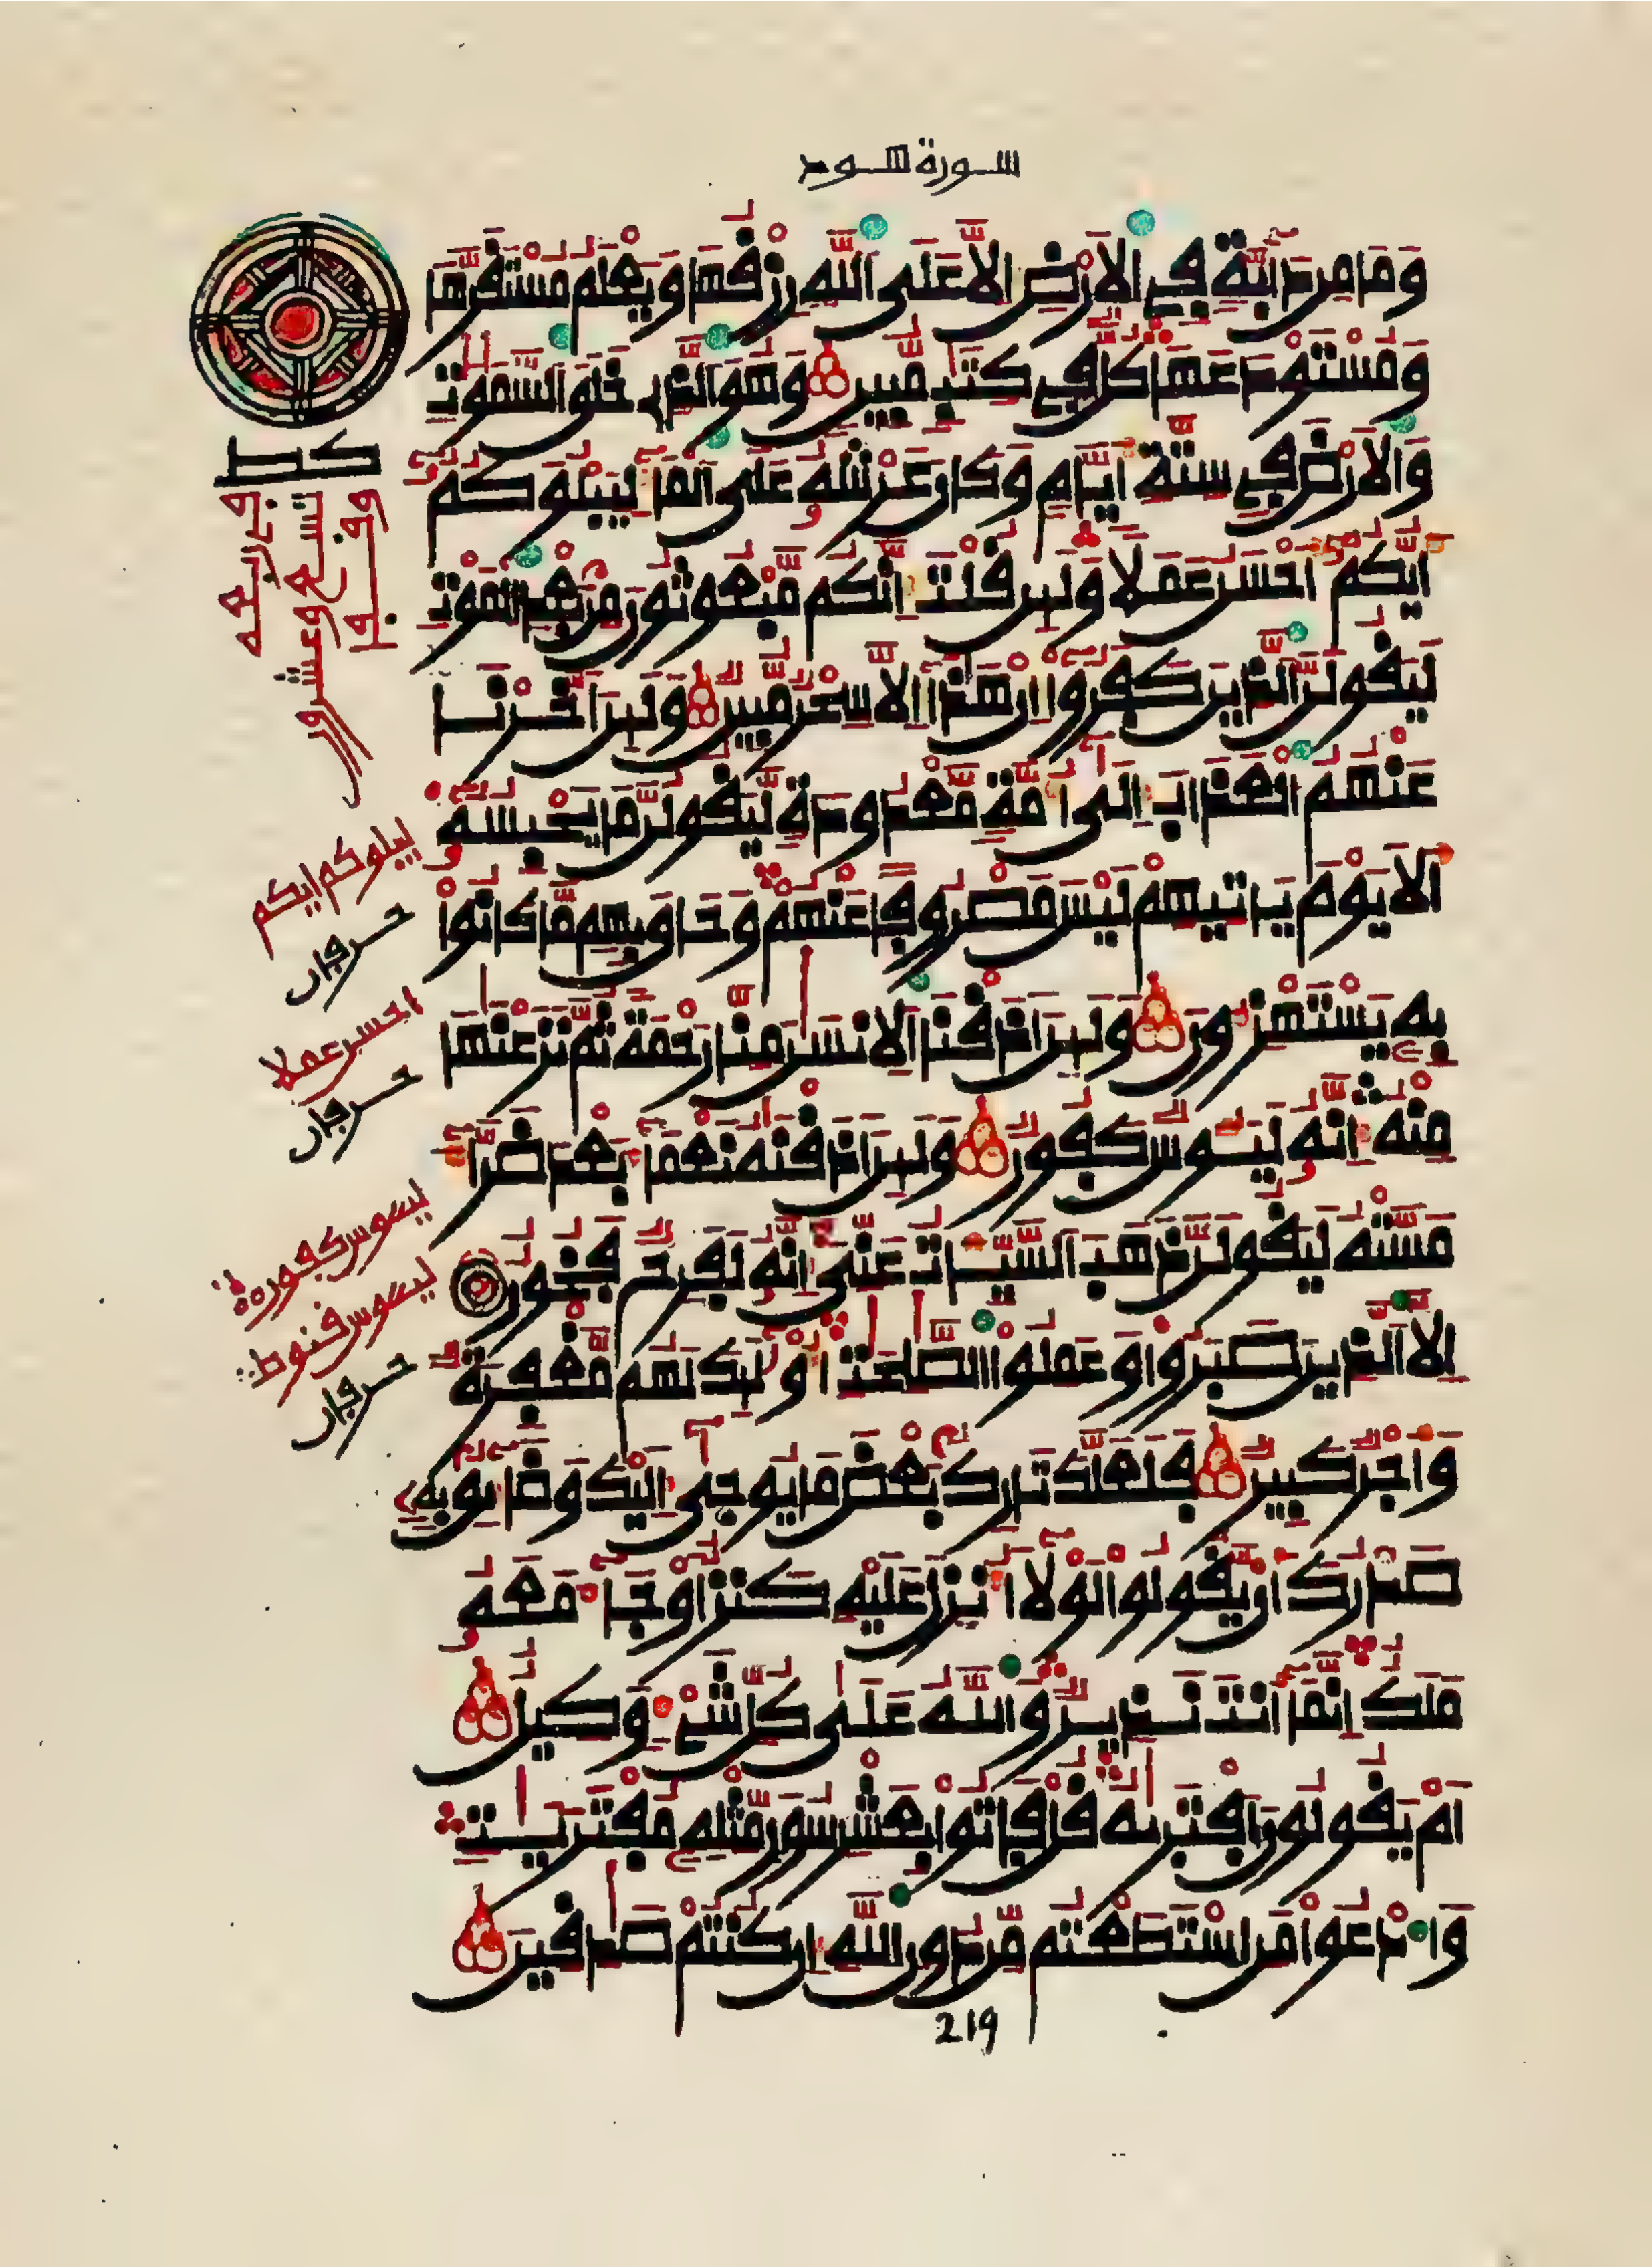 سورة هود
وَمَا مِن دَآبَّةٍ فِي الَارْضِ إِلَّا عَلَى اللَّهِ رِزْقُهَا وَيَعْلَمُ مُسْتَقَرَّهَا
وَمُسْتَوْدَعَهَا كُلٌّ فِي كِتَٰبٍ مُّبِينٍ وَهُوَ الذِي خَلَقَ السَّمَٰوَٰتِ
وَالَارْضَ فِي سِتَّةِ أَيَّامٍ وَكَانَ عَرْشُهُ عَلَى الْمَآءِ لِيَبْلُوَكُمُ
أَيُّكُمُ أَحْسَنُ عَمَلًا وَلَئِن قُلْتَ إِنَّكُم مَّبْعُوثُونَ مِن بَعْدِ الْمَوْتِ
لَيَقُولَنَّ الذِينَ كَفَرُوا إِنْ هَٰذَا إِلَّا سِحْرٌ مُّبِينٌ وَلَئِنَ اخَّرْنَا
عَنْهُمُ الْعَذَابَ إِلَىٰ أُمَّةٍ مَّعْدُودَةٍ لَّيَقُولُنَّ مَا يَحْبِسُهُ
أَلَا يَوْمَ يَاتِيهِمْ لَيْسَ مَصْرُوفًا عَنْهُمْ وَحَاقَ بِهِم مَّا كَانُوا
بِهِ يَسْتَهْزِءُونَ وَلَئِنَ اذَقْنَا الِانسَٰنَ مِنَّا رَحْمَةً ثُمَّ نَزَعْنَٰهَا
مِنْهُ إِنَّهُ لَيَـُٔوسٌ كَفُورٌ وَلَئِنَ اذَقْنَٰهُ نَعْمَآءَ بَعْدَ ضَرَّآءَ
مَسَّتْهُ لَيَقُولَنَّ ذَهَبَ السَّيِّـَٔاتُ عَنِّي إِنَّهُ لَفَرِحٌ فَخُورٌ
إِلَّا الذِينَ صَبَرُوا وَعَمِلُوا الصَّٰلِحَٰتِ أُوْلَٰئِكَ لَهُم مَّغْفِرَةٌ
وَأَجْرٌ كَبِيرٌ فَلَعَلَّكَ تَارِكٌ بَعْضَ مَا يُوحَىٰ إِلَيْكَ وَضَآئِقٌ بِهِ
صَدْرُكَ أَنْ يَّقُولُوا لَوْلَا أُنزِلَ عَلَيْهِ كَنزٌ اوْ جَآءَ مَعَهُ
مَلَكٌ إِنَّمَا أَنتَ نَذِيرٌ وَاللَّهُ عَلَىٰ كُلِّ شَيْءٍ وَكِيلٌ
أَمْ يَقُولُونَ افْتَرَىٰهُ قُلْ فَاتُوا بِعَشْرِ سُوَرٍ مِّثْلِهِ مُفْتَرَيَٰتٍ
وَادْعُوا مَنِ اسْتَطَعْتُم مِّن دُونِ اللَّهِ إِن كُنتُمْ صَٰدِقِينَ
219
كط
وقفوا
تسع وعشرون
في الربعه
ليبلوكم ايكم
حرفان
احسن عملا
حرفان
ليـوس كفور
ليـوس قنوط
حرفان